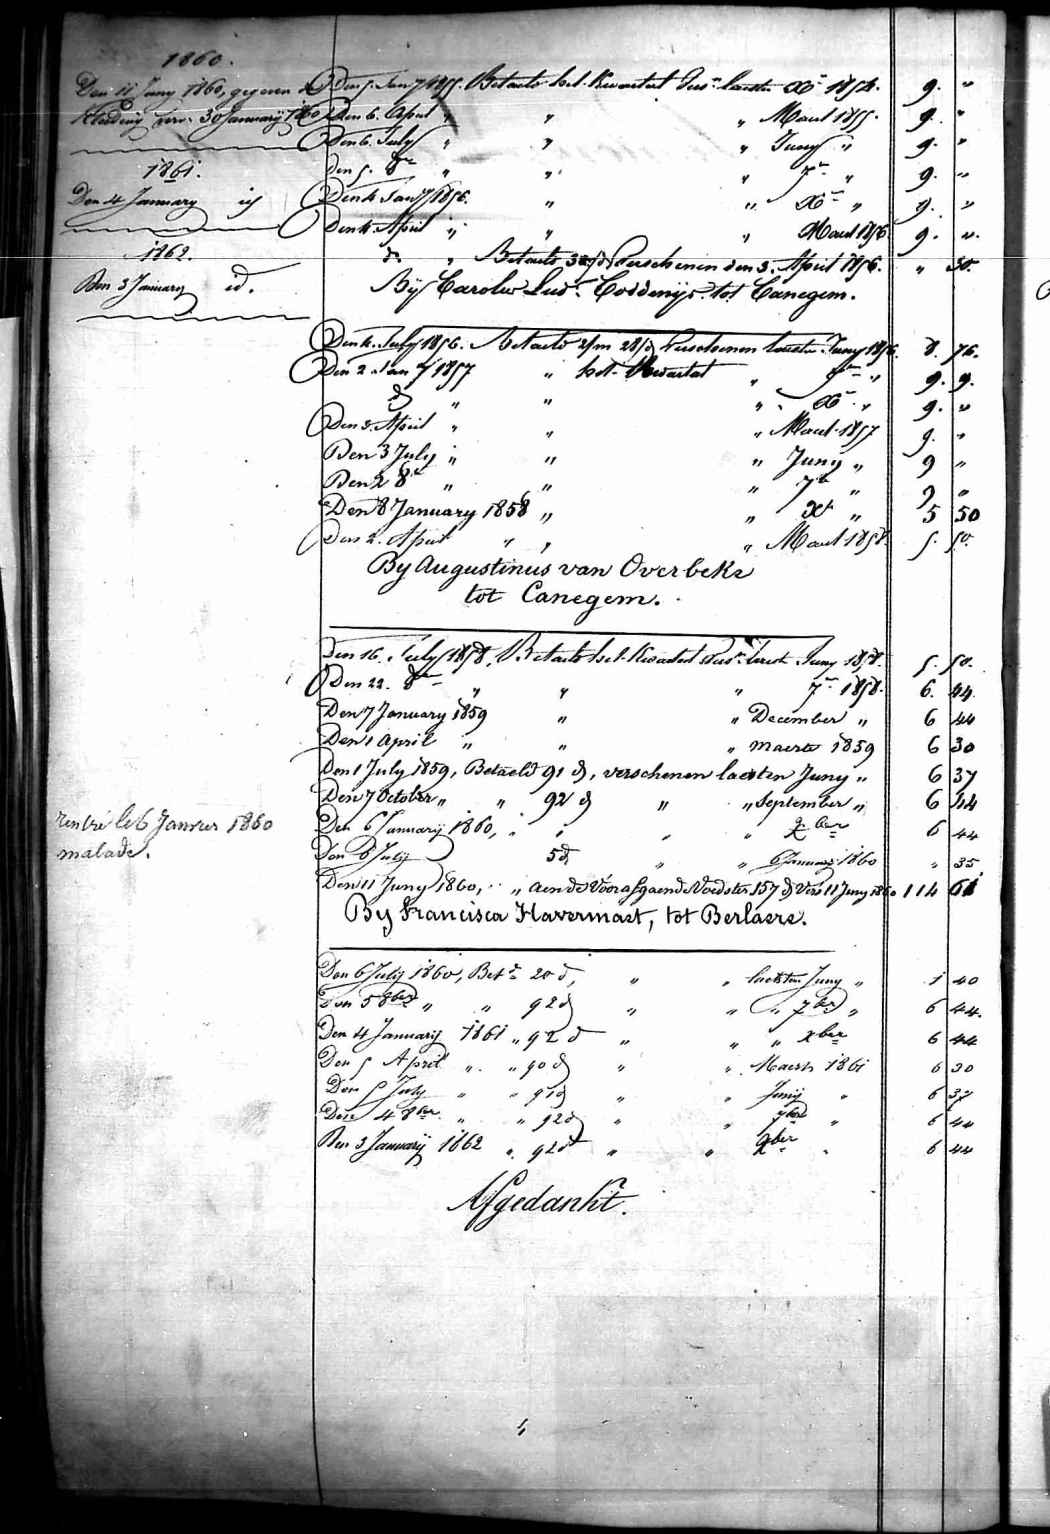 1860.
Den 11 Juny 1860, gegeven
Kleeding verv. 30 January 1860
1861.
Den 4 January id
1862.
Den 3 January id.
rentré le 6 Janvier 1860
malade.
Den 5. Jan 1855. Betaeld het Kwartaal laesten Xr 1854. 9. "
Den 6. April " " " Maart 1855. 9. "
Den 6. July " " " Juny " 9. "
Den 5. 8r " " " 7r " 9. "
Den 4 Jany 1856. " " Xr " 9. "
Den 4. April " " " Maart 1856 9. "
d. " Betaeld 3 d. Verschenen den 3. April 1856. " 30.
By Carolus Lud. Coddenys tot Canegem.
Den 4. July 1856. Betaeld 2/m 28/d Verschenen laesten Juny 1856. 8. 76.
Den 2 Jan 1857 " het Kwartaal " 7r " 9. 9.
d " " " Xr " 9. "
Den 3. April " " " Maart 1857 9. "
Den 3 July " " " Juny " 9 "
Den 2 8r " " " 7r " 9 "
Den 8 January 1858 " " Xr " 5 50
Den 2. April " " " Maart 1858 5. 50.
By Augustinus van Overbeke
tot Canegem.
Den 16. July 1858. Betaeld het Kwartaal Juny 1858. 5. 50.
Den 22. 8r " " " 7r 1858. 6. 44
Den 7 January 1859 " " December " 6 44
Den 1 April " " " maerte 1859 6 30
Den 1 July 1859, Betaeld 91 d, verschenen laesten Juny " 6 37
Den 7 October " " 92 d " " September " 6 44
Den 6 Januarij 1860, " " " " xber 6 44
Den 6 July 5 d " " 6 January 1860 " 35
Den 11 Juny 1860, " " aen de Voorafgaende Voedster 157 d Vers 11 Juny 1860 114 61
By Francisca Havermaet, tot Berlaere.
Den 6 July 1860, Bet. 20 d, " " laetsten Juny " 1 40
Den 5 8ber " " 92 d " " " 7ber " 6 44.
Den 4 Januarij 1861 " 92 d " " " xber 6 44
Den 5 April " " 90 d " " Maerts 1861 6 30
Den 5 July " " 91 d " " Junij " 6 37
Den 4 8ber " " 92 d " " 7ber " 6 44
Den 3 Januarij 1862 " 92 d " " xber " 6 44
Afgedankt.